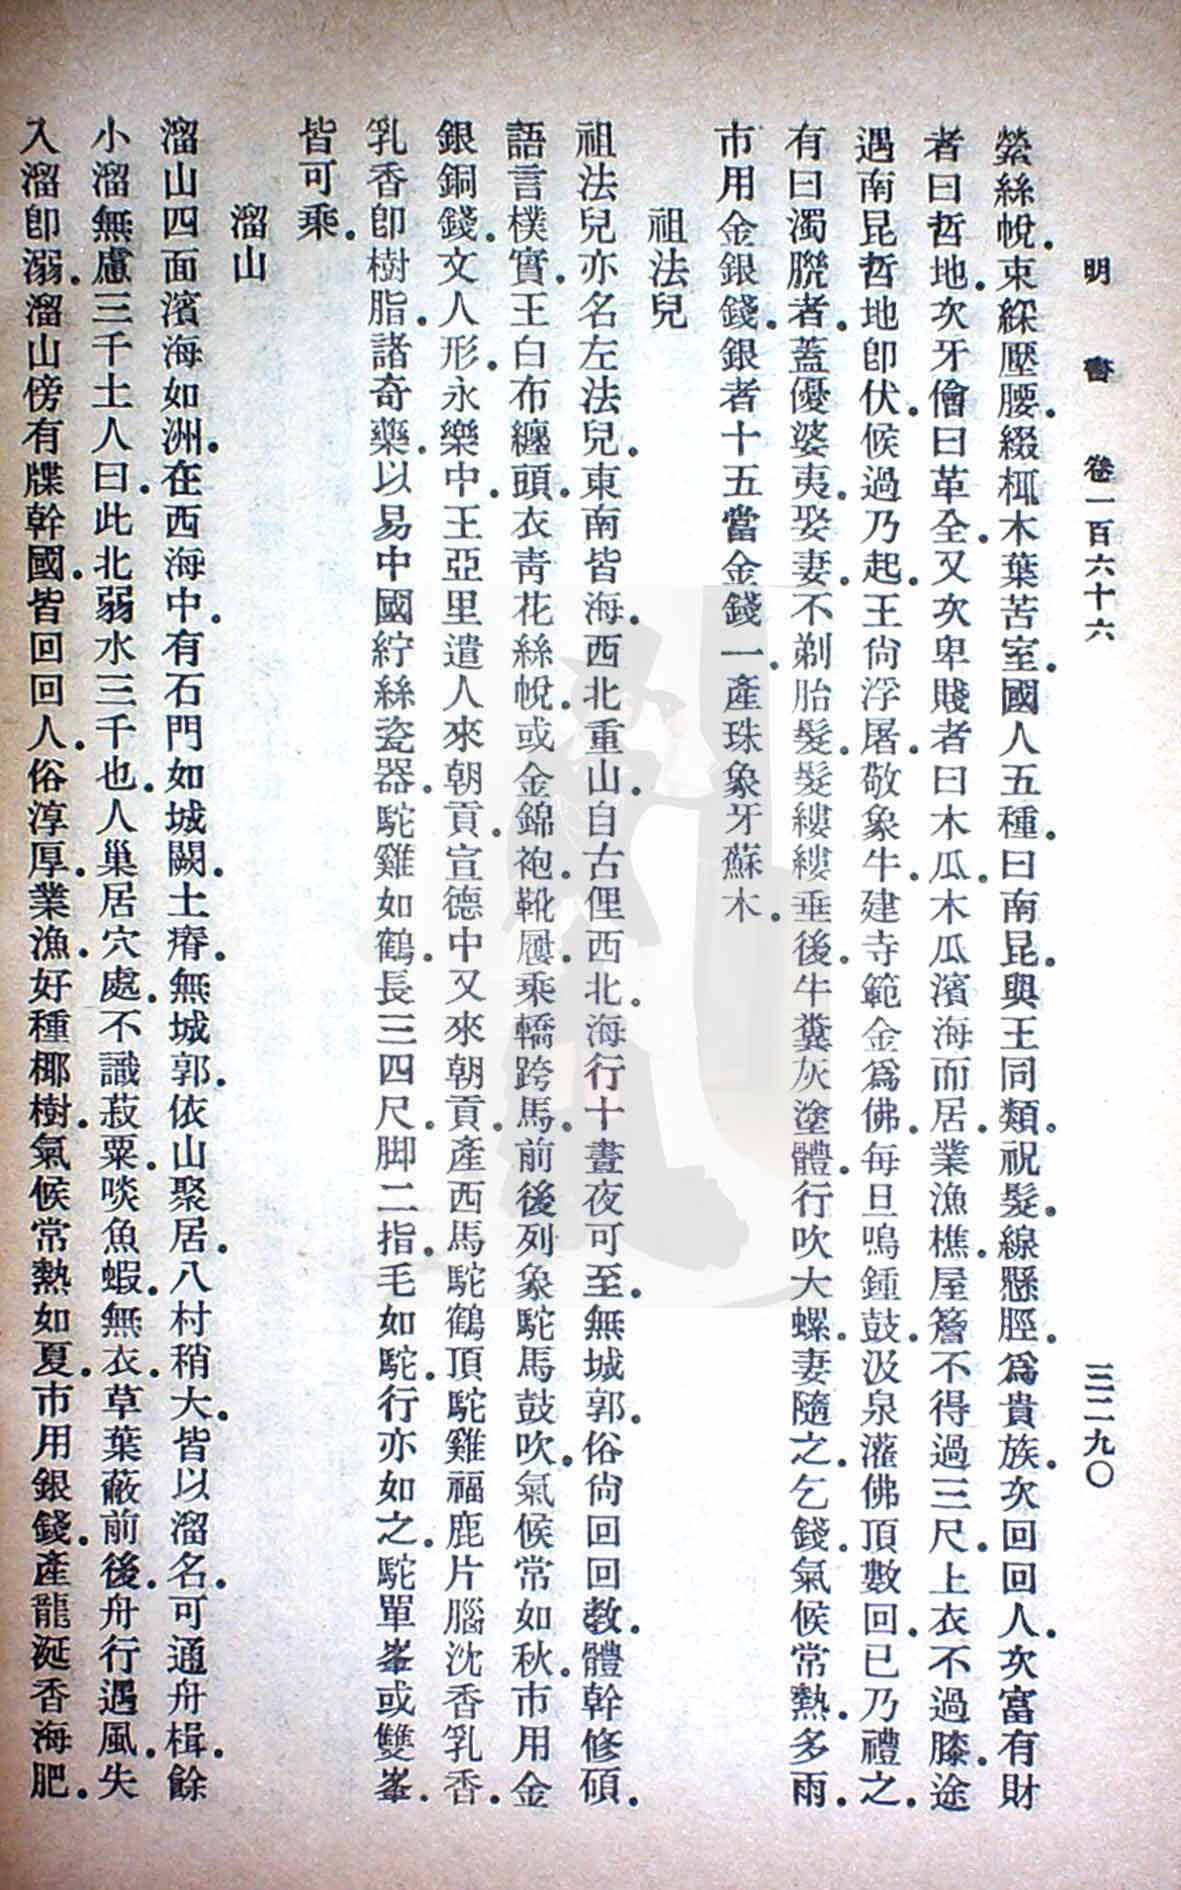 明書 卷一百六十六 三二九〇
縈絲帨。束綵壓腰。綴栮木葉苫室。國人五種。曰南昆。與王同類。祝髮。線懸脛。爲貴族。次回回人。次富有財
者曰哲地。次牙儈曰革全。又次卑賤者曰木瓜。木瓜濱海而居。業漁樵。屋簷不得過三尺。上衣不過膝。途
遇南昆哲地卽伏。候過乃起。王尙浮屠。敬象牛。建寺範金爲佛。每旦鳴鍾鼓。汲泉灌佛頂數回。已乃禮之。
有曰濁騰者。蓋優婆夷。娶妻。不剃胎髮。髮縷縷垂後。牛糞灰塗體。行吹大螺。妻隨之。乞錢。氣候常熱。多雨。
市用金銀錢。銀者十五當金錢一。產珠象牙蘇木。
祖法兒
祖法兒亦名左法兒。東南皆海。西北重山。自古俚西北。海行十晝夜可至。無城郭。俗尙回回教。體幹修碩。
語言樸實。王白布纏頭。衣靑花絲帨。或金錦袍。靴屨。乘轎跨馬。前後列象駝馬鼓吹。氣候常如秋。市用金
銀銅錢。文人形。永樂中。王亞里遣人來朝貢。宣德中又來朝貢。產西馬駝鶴頂駝雞福鹿片腦沈香乳香。
乳香卽樹脂。諸奇藥。以易中國紵絲瓷器。駝雞如鶴。長三四尺。脚二指。毛如駝。行亦如之。駝單峯或雙峯。
皆可乘。
溜山
溜山四面濱海如洲。在西海中。有石門如城闕。土瘠。無城郭。依山聚居。八村稍大。皆以溜名。可通舟楫。餘
小溜無慮三千。土人曰。此北弱水三千也。人巢居穴處。不識菽粟。啖魚蝦。無衣。草葉蔽前後。舟行遇風。失
入溜卽溺。溜山傍有牒幹國。皆回回人。俗淳厚。業漁。好種椰樹。氣候常熱如夏。市用銀錢。產龍涎香海肥。